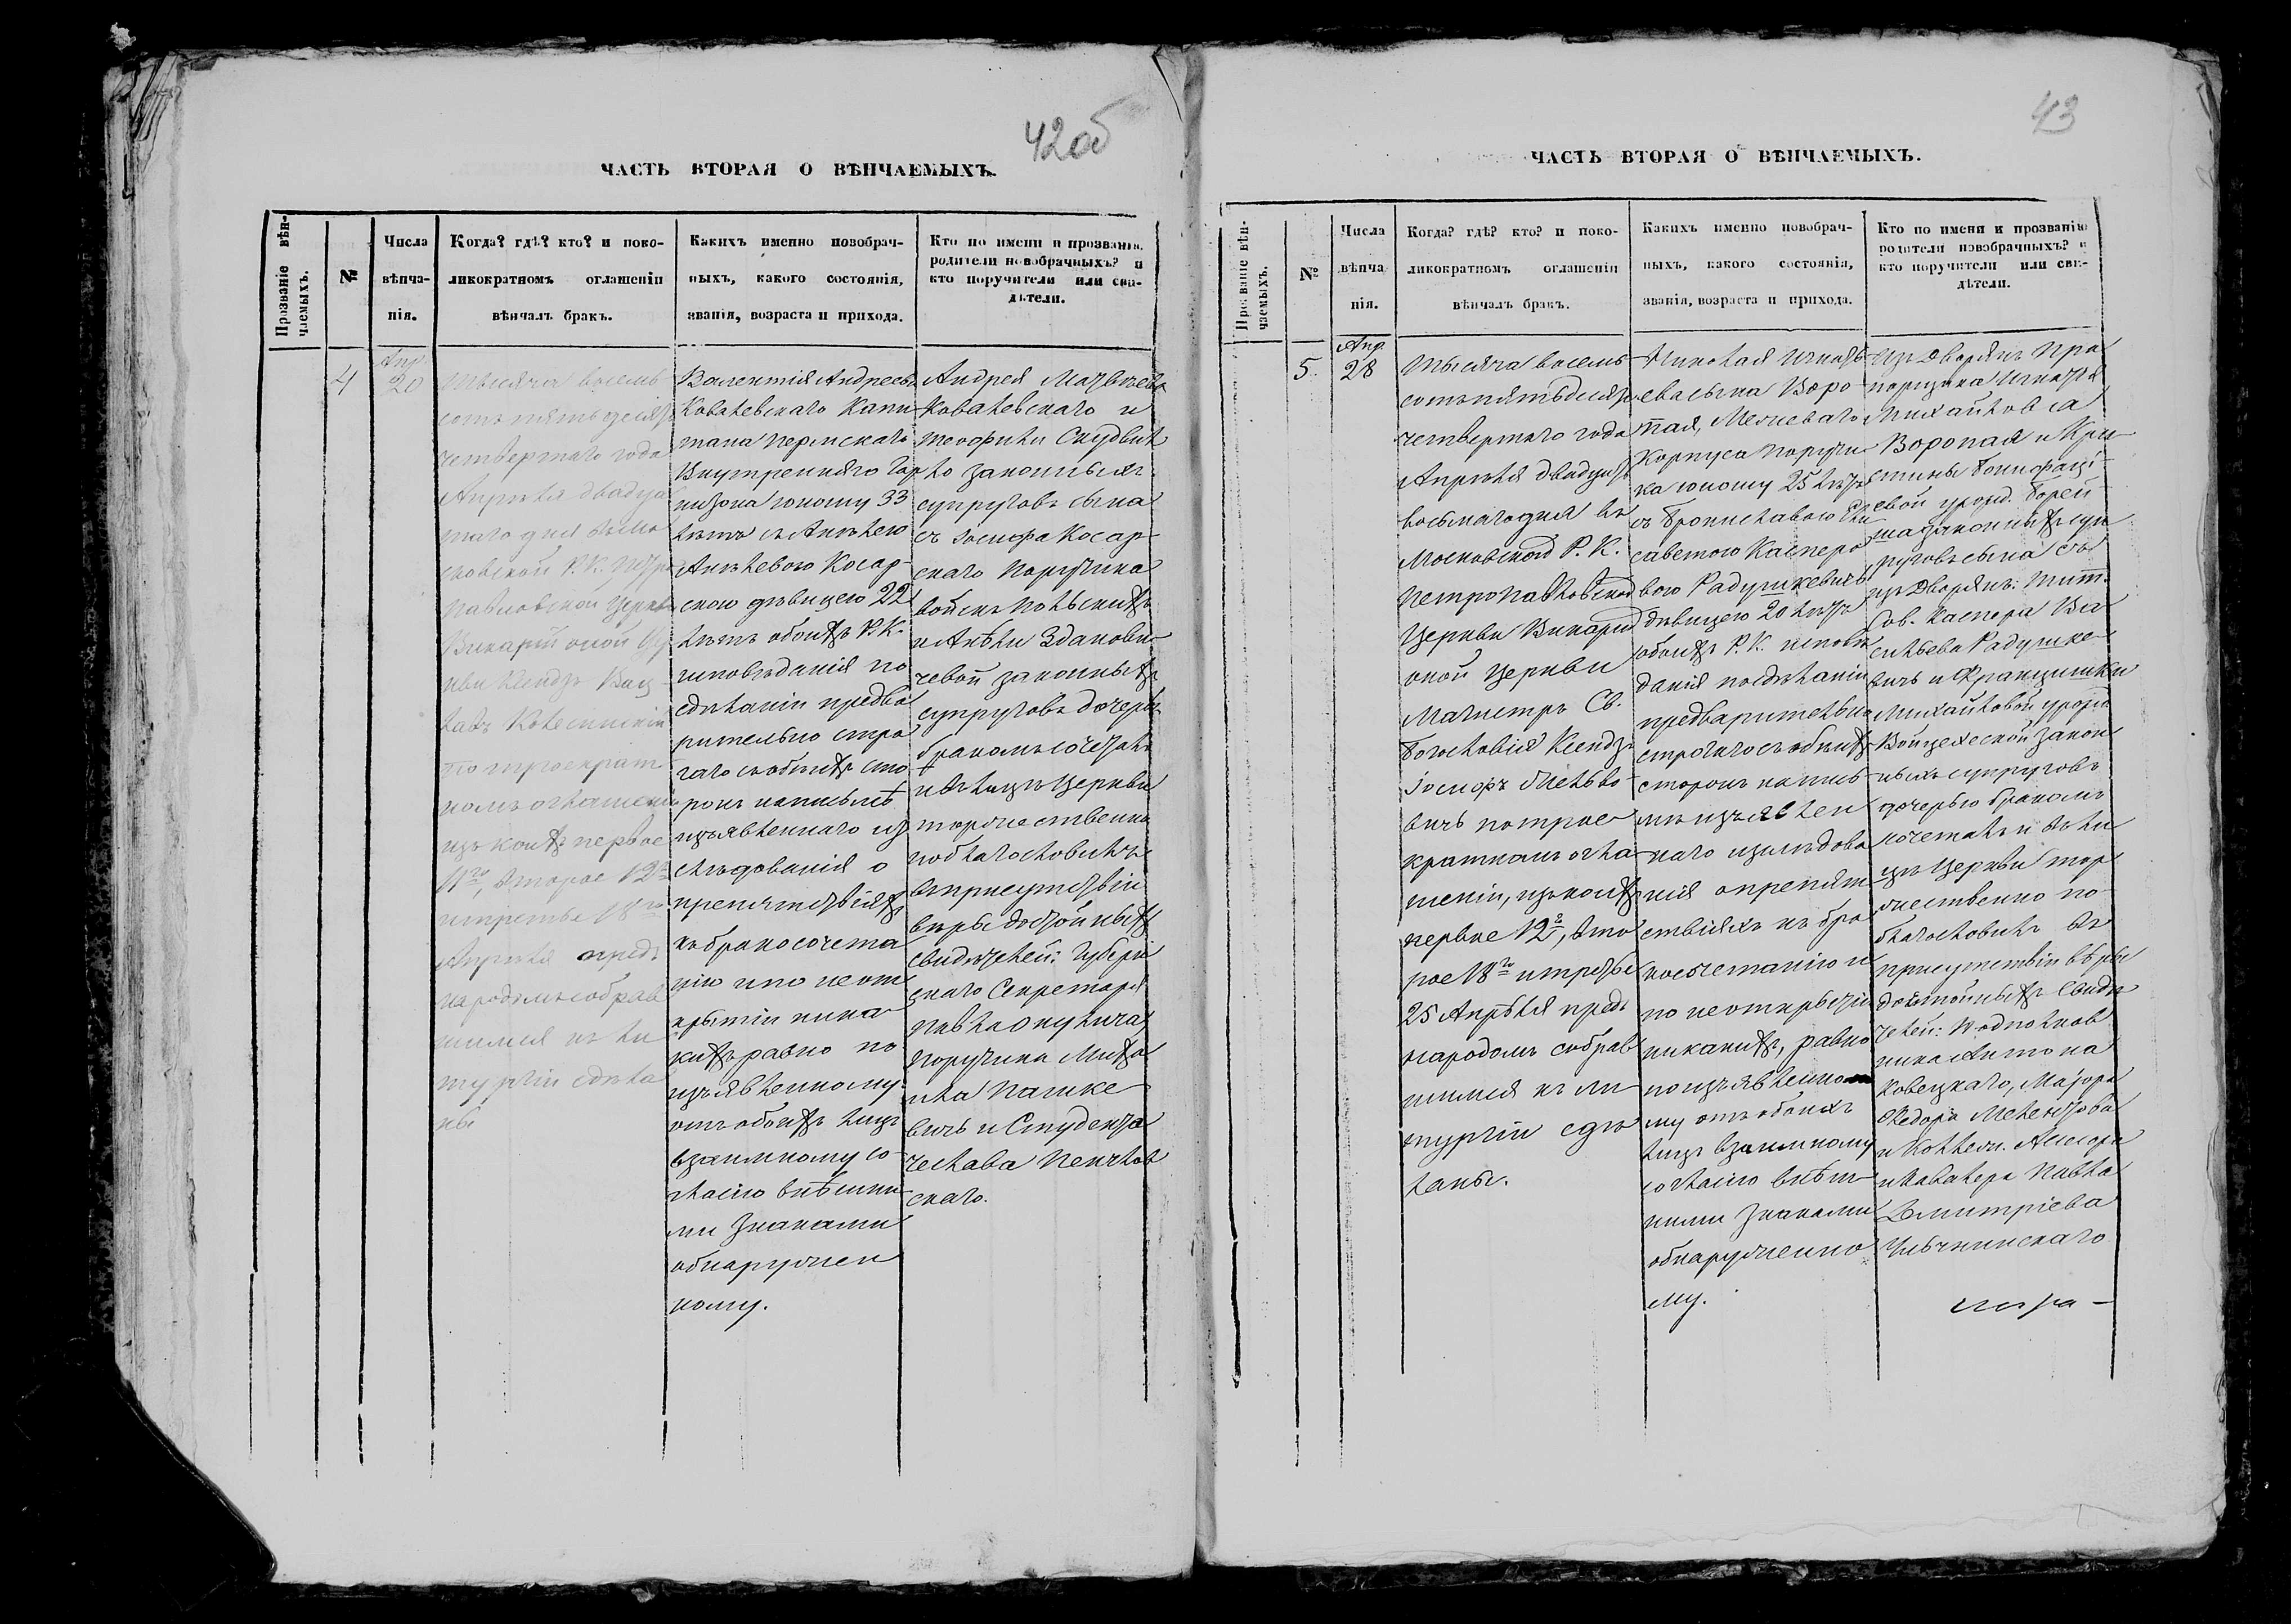 42об
ЧАСТЬ ВТОРАЯ О ВѢНЧАЕМЫХЪ.
Прозваніе вѣн-
чаемыхъ.
№
Числа
вѣнча-
нія.
Когда? гдѣ? кто? и поко-
ликократномъ оглашеніи
вѣнчалъ бракъ.
Какихъ именно новобрач-
ныхъ, какого состоянія,
званія, возраста и прихода.
Кто по имени и прозванію
родители новобрачныхъ? и
кто поручители или сви-
дѣтели.
4
Апр
20
Тысяча восемь
сотъ пятьдесятъ
четвертаго года
Апрѣля двадца
таго дня въ Мо
сковской Р. К. Петро
Павловской Церкви
Викарій оной Цер
кви Ксендзъ Вац
лавъ
по троекрат
номъ оглашеніи
изъ коихъ первое
11го, второе 12го
и третье 18го
Апрѣля предъ
народомъ собрав
шимся къ ли
тургіи сдѣла
ны
Валентія Андреева
Ковалевскаго Капи
тана Пермскаго
Внутренняго Гар
низона юношу 33
лѣтъ съ Анѣлею
Анѣлевою Косар
скою дѣвицею 22
лѣтъ обоихъ Р.К.
исповѣданія по
сдѣланіи предва
рительно стро
гаго съ обоихъ сто
ронъ на письмѣ
изъявленнаго из
слѣдованія о
препятствіяхъ
къ бракосочета
нію и по неот
крытіи ника
кихъ равно по
изъявленному
отъ обоихъ лицъ
взаимному со
гласію внѣшни
ми знаками
обнаружен
ному.
Андрея
Ковалевскаго и
Теофили Скудвил
ло законныхъ
супруговъ сына
съ Іосифа Косар
скаго Поручика
войскъ Польскихъ
и Анѣли Зданови
чевой законныхъ
супруговъ дочерью
бракомъ сочеталъ
и въ лицѣ Церкви
торжественно
поблагословилъ
въ присутствіи
вѣры достойныхъ
свидѣтелей: Губерн
скаго Секретаря
Павла Окулича,
Поручика Миха
ила Пашке
вичъ и Студента
Чеслава Пенчков
скаго.
43
ЧАСТЬ ВТОРАЯ О ВѢНЧАЕМЫХЪ.
Прозваніе вѣн-
чаемыхъ.
№
Числа
вѣнча
нія.
Когда? гдѣ? кто? и поко-
ликократномъ оглашеніи
вѣнчалъ бракъ.
Какихъ именно новобрач-
ныхъ, какого состоянія,
званія, возраста и прихода.
Кто по имени и прозванію
родители новобрачныхъ? и
кто поручители или сви-
дѣтели.
5
Апр
28
Тысяча восемь
сотъ пятьдесятъ
четвертаго года
Апрѣля двадцать
восьмаго дня въ
Московской Р. К.
Петропавловской
Церкви Викарій
оной Церкви
Магистръ Св.
Богословія Ксендзъ
Іосифъ
вичъ по трое
кратномъ огла
шеніи, изъ коихъ
первое 12е, вто
рое 18го и третье
25 Апрѣля предъ
народомъ собрав
шимся къ ли
тургіи сдѣ
ланы.
Николая Игнатъ
ева сына Воро
пая, Межеваго
Корпуса Поручи
ка юношу 25 лѣтъ
съ Брониславою Ели
саветою Касперо
вою Радушкевичъ
дѣвицею 20 лѣтъ
обоихъ Р. К. исповѣ
данія по сдѣланіи
предварительно
строгаго съ обоихъ
сторонъ на пись
мѣ изъявлен
наго изслѣдова
нія о препят
ствіяхъ къ бра
косочетанію и
по неоткрытіи
никакихъ, равно
по изъявленно
му отъ обоихъ
лицъ взаимному
согласію внѣш
ними знаками
обнаруженно
му.
Изъ Дворянъ Пра
порщика Игнатія
Михайлова
Воропая и Кри
стины Бонифаці
евой урожд. Борей
ша законныхъ суп
руговъ сына съ
изъ Дворянъ: Тит.
Сов. Каспера Ва
сильева Радушке
вичъ и Францишки
Михайловой урожд
Войцеховской закон
ныхъ супруговъ
дочерью бракомъ
сочеталъ и въ ли
цѣ Церкви тор
жественно по
благословилъ въ
присутствіи вѣры
достойныхъ Свидѣ
телей: Подполков
ника Антона
Ковецкаго, Маіора
Ѳедора Мелентова
и Коллеж. Ассесора
и Кавалера Павла
Дмитріева
Ульчинскаго